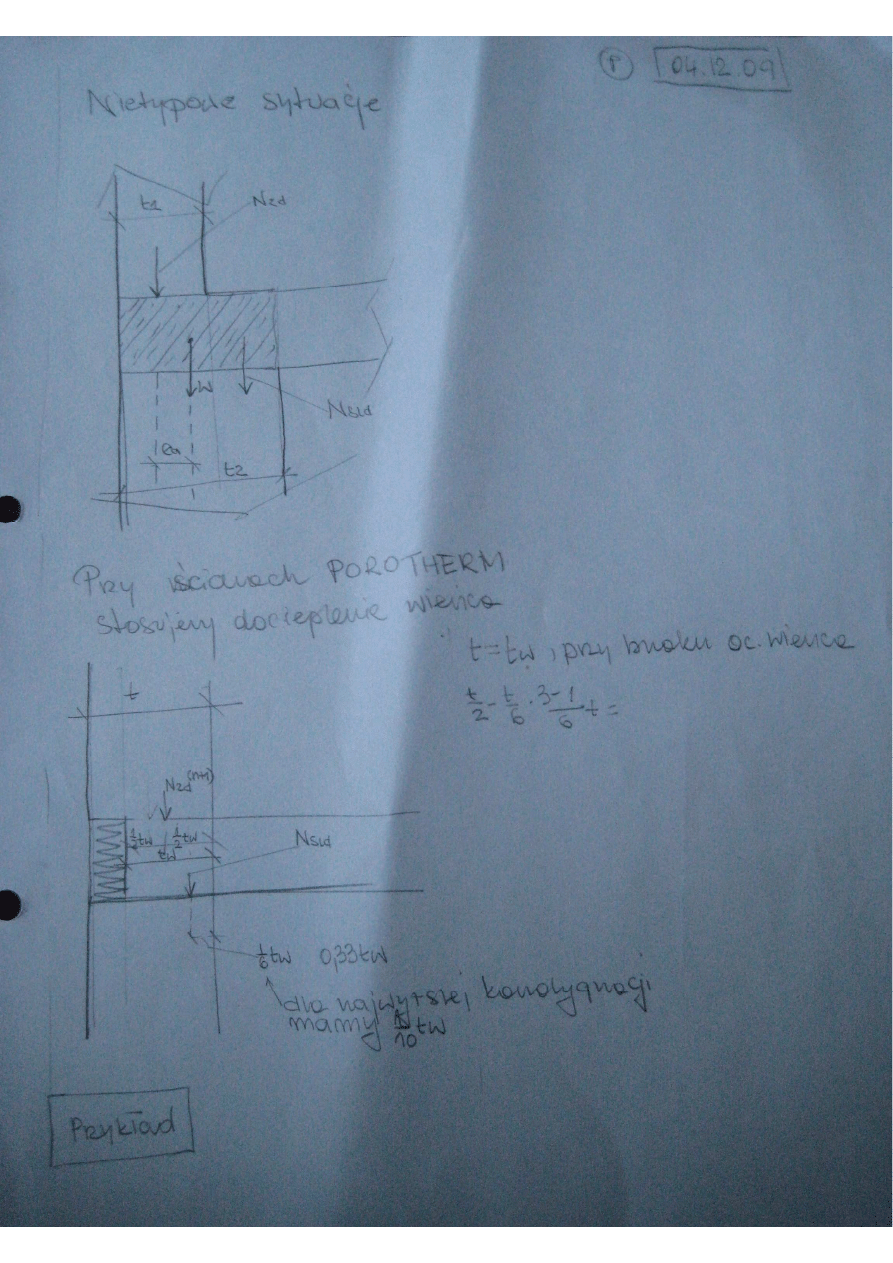 P 04.12.09
Nietypowe sytuacje
t1
N2d
W
Nsld
ea
t2
Przy ścianach POROTHERM
stosujemy docieplenie wieńca
t=tw, przy braku oc. wieńca
t/2 - t/6 · 3-1/6 · t =
t
N2d(n+1)
1/2tw 1/2tw
tw
Nsld
1/6tw 0,33tw
dla najwyższej kondygnacji
mamy /10 tw
Przykład